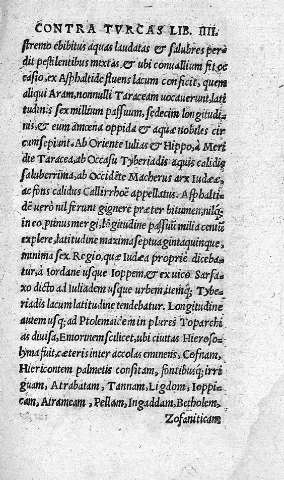 CONTRA TVRCAS LIB. IIII.
stremo ebibitus aquas laudatas & salubres perdit
pestilentibus mixtas, & ubi conuallium fit oc
casio, ex Asphaltide fluens lacum conficit, quem
aliqui Aram, nonnulli Taraceam uocauerunt, lati
tudinis sex millium passuum, sedecim longitudi-
nis, & eum amœna oppida & aquæ nobiles cir
cumsepiunt. Ab Oriente Iulias & Hippo, à Meri
die Taracea, ab Occasu Tyberiadis aquis calidis
saluberrima, ab Occidēte Macherus arx Iudææ,
ac fons calidus Callirrhoë appellatus. Asphalti-
dē uerò nil ferunt gignere præter bitumen, nilq;
in eo pinus mergi, lōgitudine passuū milia centū
explere, latitudine maxima septuaginta quinque,
minima sex. Regio, quæ Iudæa propriè diceba-
tur, à Iordane usque Ioppem, & ex uico. Sarsa-
xo dicto ad Iuliadem usque urbem, itemq; Tybe-
riadis lacum latitudine tendebatur. Longitudine
autem usq; ad Ptolemaidem in plures Toparchi
as diuisa, Emorinem scilicet, ubi ciuitas Hieroso-
lyma fuit, cæteris inter accolas eminens, Cofnam,
Hiericontem palmetis consitam, fontibusq; irri
guam, Atrabatam, Tannam, Ligdom, Ioppi
cam, Atrameam, Pellam, Ingaddam, Betholem,
Zofaniticam